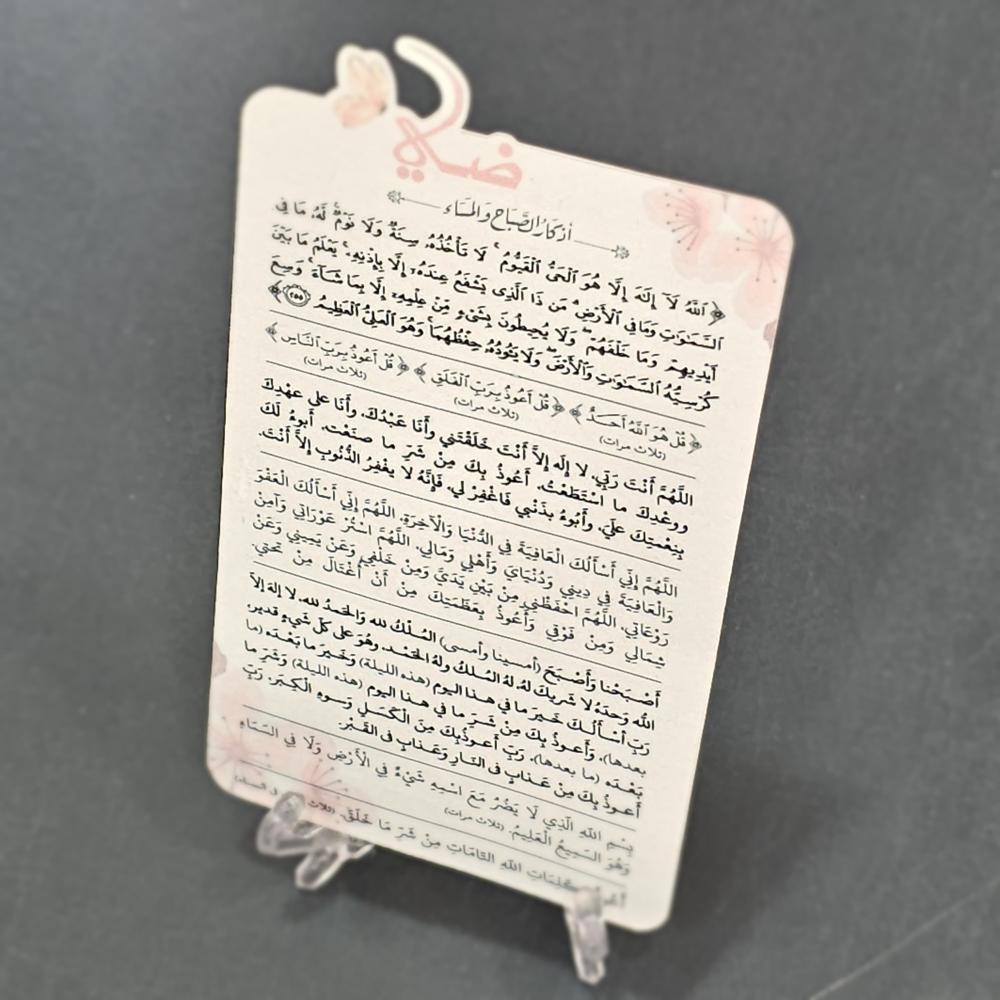 أذكار الصَّبَاحِ وَالمَسَاءِ
﴿ ٱللَّهُ لَآ إِلَٰهَ إِلَّا هُوَ ٱلْحَىُّ ٱلْقَيُّومُ ۚ لَا تَأْخُذُهُۥ سِنَةٌ وَلَا نَوْمٌ ۚ لَّهُۥ مَا فِى
ٱلسَّمَٰوَٰتِ وَمَا فِى ٱلْأَرْضِ ۗ مَن ذَا ٱلَّذِى يَشْفَعُ عِندَهُۥٓ إِلَّا بِإِذْنِهِۦ ۚ يَعْلَمُ مَا بَيْنَ
أَيْدِيهِمْ وَمَا خَلْفَهُمْ ۖ وَلَا يُحِيطُونَ بِشَىْءٍ مِّنْ عِلْمِهِۦٓ إِلَّا بِمَا شَآءَ ۚ وَسِعَ
كُرْسِيُّهُ ٱلسَّمَٰوَٰتِ وَٱلْأَرْضَ ۖ وَلَا يَـُٔودُهُۥ حِفْظُهُمَا ۚ وَهُوَ ٱلْعَلِىُّ ٱلْعَظِيمُ ٢٥٥ ﴾
﴿ قُلْ هُوَ ٱللَّهُ أَحَدٌ ﴾ ﴿ قُلْ أَعُوذُ بِرَبِّ ٱلْفَلَقِ ﴾ ﴿ قُلْ أَعُوذُ بِرَبِّ ٱلنَّاسِ ﴾
(ثلاث مرات) (ثلاث مرات) (ثلاث مرات)
اللَّهُمَّ أَنْتَ رَبِّي، لا إِلَه إِلاَّ أَنْتَ خَلَقْتَني وأَنَا عَبْدُكَ، وأَنَا على عهْدِكَ
ووعْدِكَ ما اسْتَطَعْتُ، أَعُوذُ بِكَ مِنْ شَرِّ ما صنَعْت، أَبوءُ لَكَ
بِنِعْمتِكَ عَلَيَّ، وأَبُوءُ بذَنْبي فَاغْفِرْ لي، فَإِنَّهُ لا يغْفِرُ الذُّنُوبِ إِلاَّ أَنْتَ.
اللَّهُمَّ إِنِّي أَسْأَلُكَ الْعَافِيَةَ فِي الدُّنْيَا وَالْآخِرَةِ، اللَّهُمَّ إِنِّي أَسْأَلُكَ الْعَفْوَ
وَالْعَافِيَةَ فِي دِينِي وَدُنْيَايَ وَأَهْلِي وَمَالِي، اللَّهُمَّ اسْتُرْ عَوْرَاتِي وَآمِنْ
رَوْعَاتِي، اللَّهُمَّ احْفَظْنِي مِنْ بَيْنِ يَدَيَّ وَمِنْ خَلْفِي وَعَنْ يَمِينِي وَعَنْ
شِمَالِي وَمِنْ فَوْقِي وَأَعُوذُ بِعَظَمَتِكَ مِنْ أَنْ أُغْتَالَ مِنْ تَحْتِي.
أَصْبَحْنا وَأَصْبَحَ (أمسينا وأمسى) المُلْكُ لله وَالحَمدُ لله، لا إلهَ إلاّ
اللهُ وَحدَهُ لا شَريكَ لهُ، لهُ المُلكُ ولهُ الحَمْد، وهُوَ على كلّ شَيءٍ قدير،
رَبِّ أسْأَلُكَ خَيرَ ما في هذا اليوم (هذه الليلة) وَخَيرَ ما بَعْدَه (ما
بعدها)، وَأَعوذُ بِكَ مِنْ شَرِّ ما في هذا اليوم (هذه الليلة) وَشَرِّ ما
بَعْدَه (ما بعدها)، رَبِّ أَعوذُبِكَ مِنَ الْكَسَلِ وَسوءِ الْكِبَر، رَبِّ
أَعوذُ بِكَ مِنْ عَذابٍ في النّارِ وَعَذابٍ في القَبْر.
بِسْمِ اللهِ الَّذِي لَا يَضُرُّ مَعَ اسْمِهِ شَيْءٌ فِي الْأَرْضِ وَلَا فِي السَّمَاءِ
وَهُوَ السَّمِيعُ الْعَلِيمُ. (ثلاث مرات)
كَلِمَاتِ اللهِ التَّامَّاتِ مِنْ شَرِّ مَا خَلَقَ. (ثلاث